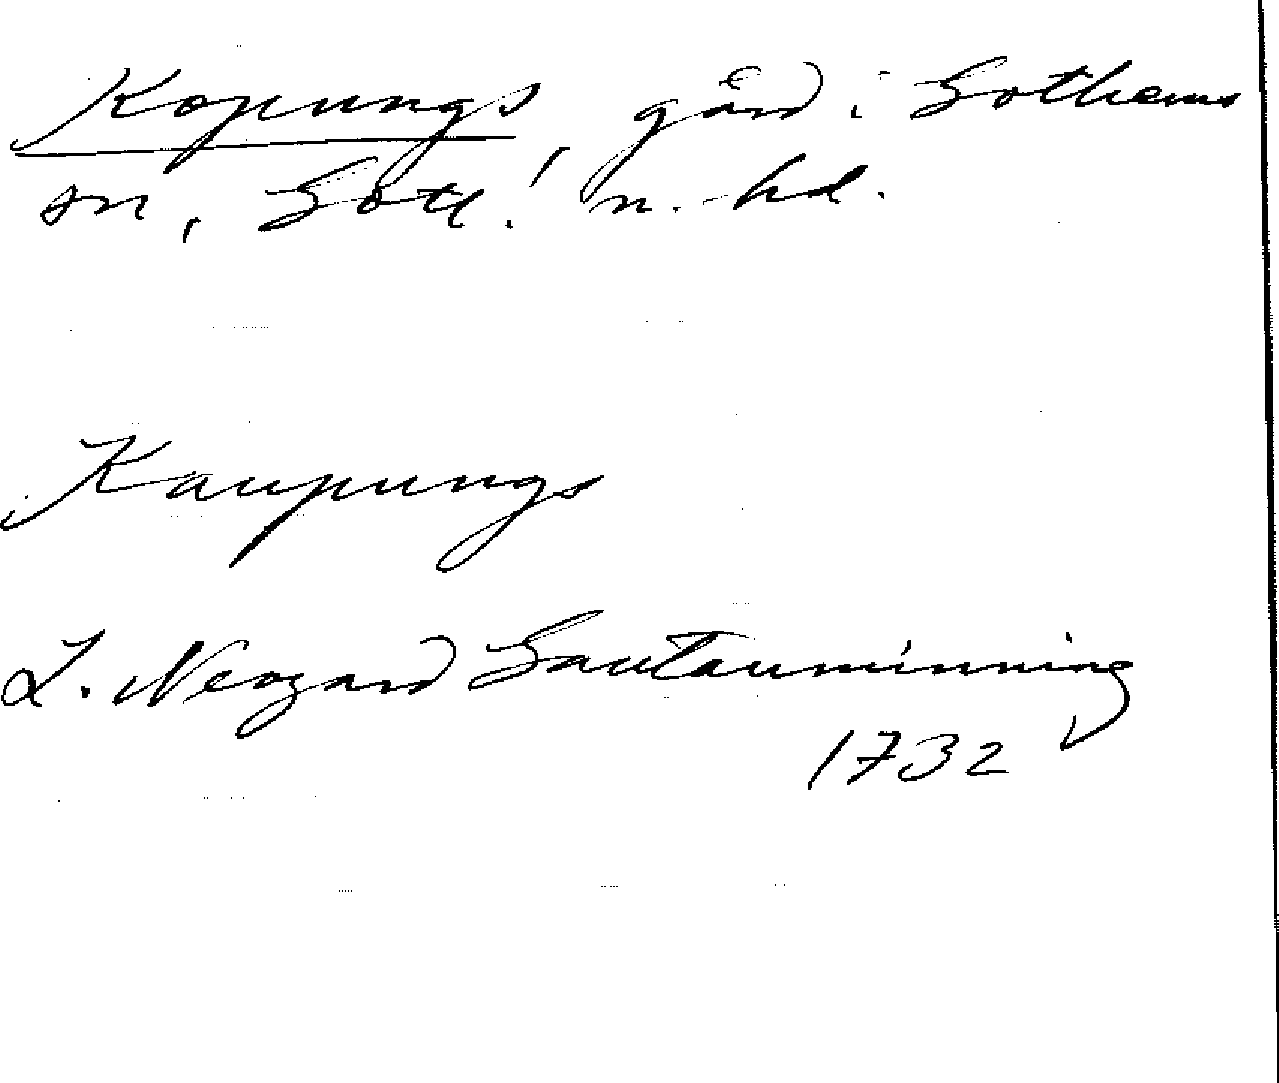 Kopungs, gård i Gothems
sn, Gotl. n. hd.
Kaupungs
L. Neogard Gautauminning
1732